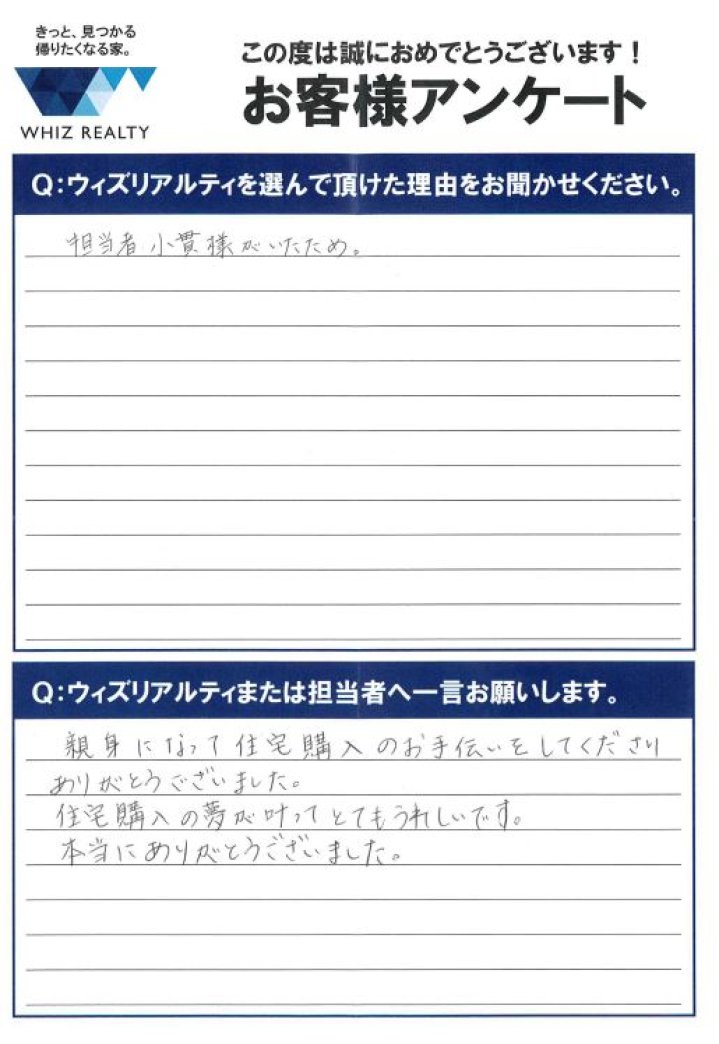 きっと、見つかる
帰りたくなる家。
WHIZ REALTY
この度は誠におめでとうございます！
お客様アンケート
Q：ウィズリアルティを選んで頂けた理由をお聞かせください。
担当者 小貫様がいたため。
Q：ウィズリアルティまたは担当者へ一言お願いします。
親身になって住宅購入のお手伝いをしてくださり
ありがとうございました。
住宅購入の夢が叶ってとてもうれしいです。
本当にありがとうございました。